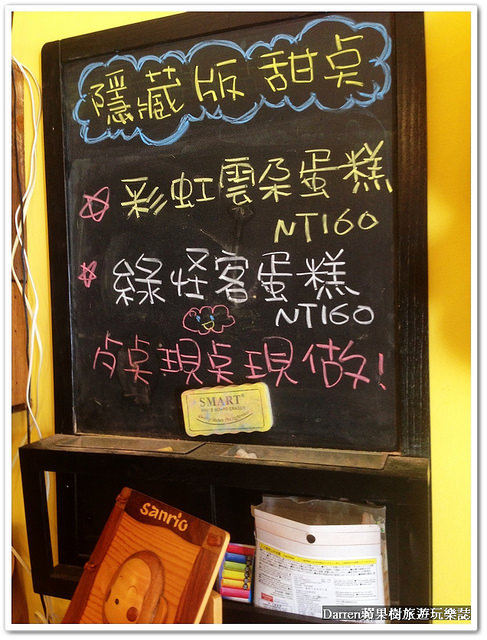 隱藏版甜奌
彩虹雲朵蛋糕
NT160
綠怪客蛋糕
NT160
歺奌現奌現做!
SMART
sanrio
Darren蘋果樹旅遊玩樂誌